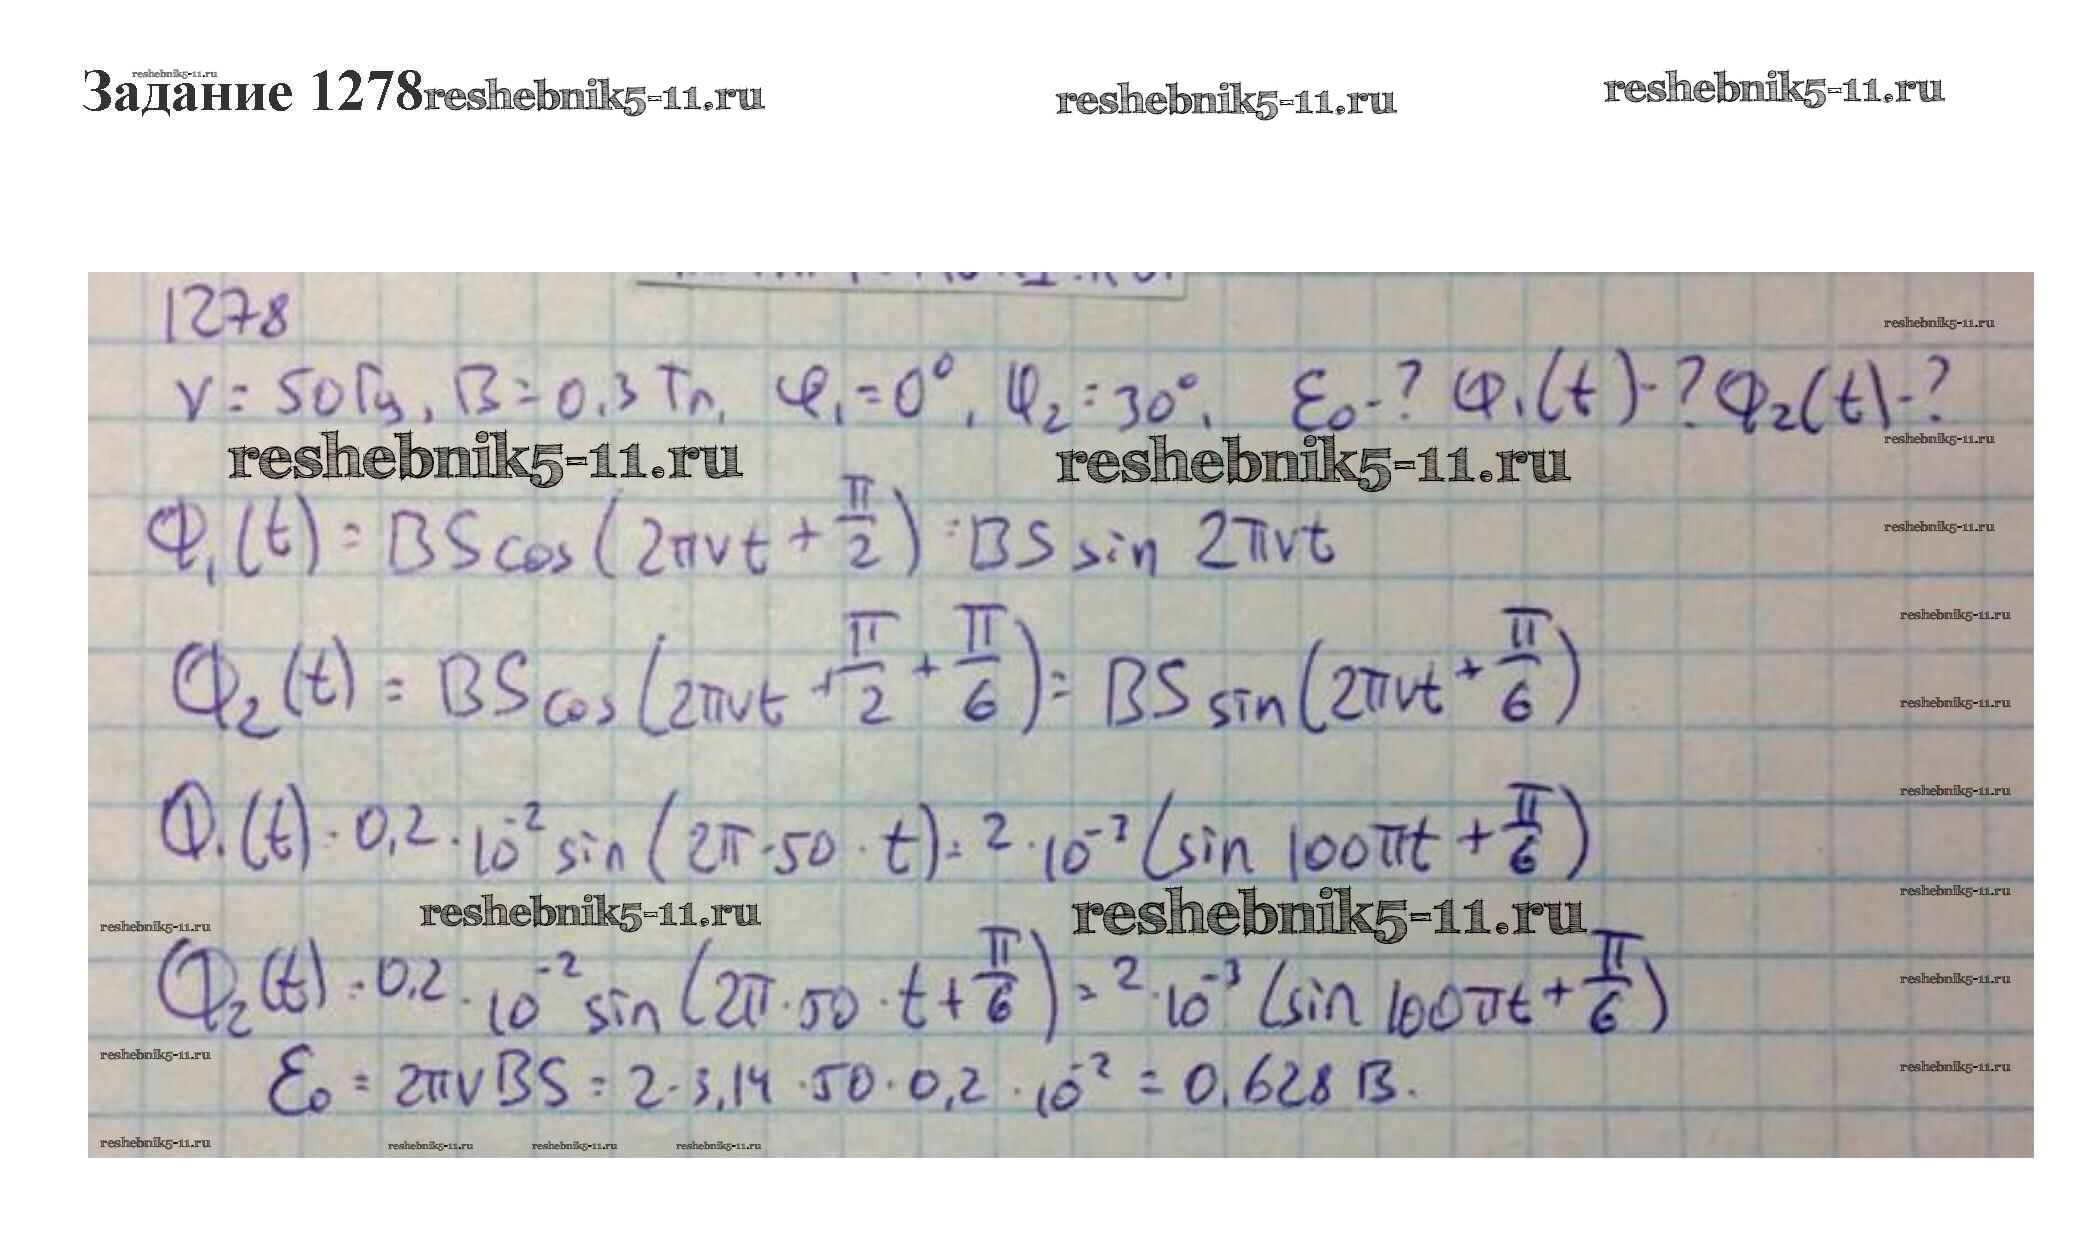 reshebnik5-11.ru
Задание 1278 reshebnik5-11.ru reshebnik5-11.ru reshebnik5-11.ru
1278
reshebnik5-11.ru
ν = 50 Гц, B = 0,3 Тл, φ₁ = 0°, φ₂ = 30°. ℰ₀ - ? Φ₁(t) - ? Φ₂(t) - ?
reshebnik5-11.ru reshebnik5-11.ru reshebnik5-11.ru
Φ₁(t) = BS cos(2πνt + π/2) = BS sin 2πνt
reshebnik5-11.ru
reshebnik5-11.ru
Φ₂(t) = BS cos(2πνt + π/2 + π/6) = BS sin(2πνt + π/6)
reshebnik5-11.ru
reshebnik5-11.ru
Φ₁(t) = 0,2 · 10⁻² sin(2π · 50 · t) = 2 · 10⁻³ (sin 100πt + π/6)
reshebnik5-11.ru
reshebnik5-11.ru reshebnik5-11.ru reshebnik5-11.ru
Φ₂(t) = 0,2 · 10⁻² sin(2π · 50 · t + π/6) = 2 · 10⁻³ (sin 100πt + π/6)
reshebnik5-11.ru
reshebnik5-11.ru reshebnik5-11.ru
ℰ₀ = 2πνBS = 2 · 3,14 · 50 · 0,2 · 10⁻² = 0,628 В.
reshebnik5-11.ru reshebnik5-11.ru reshebnik5-11.ru reshebnik5-11.ru